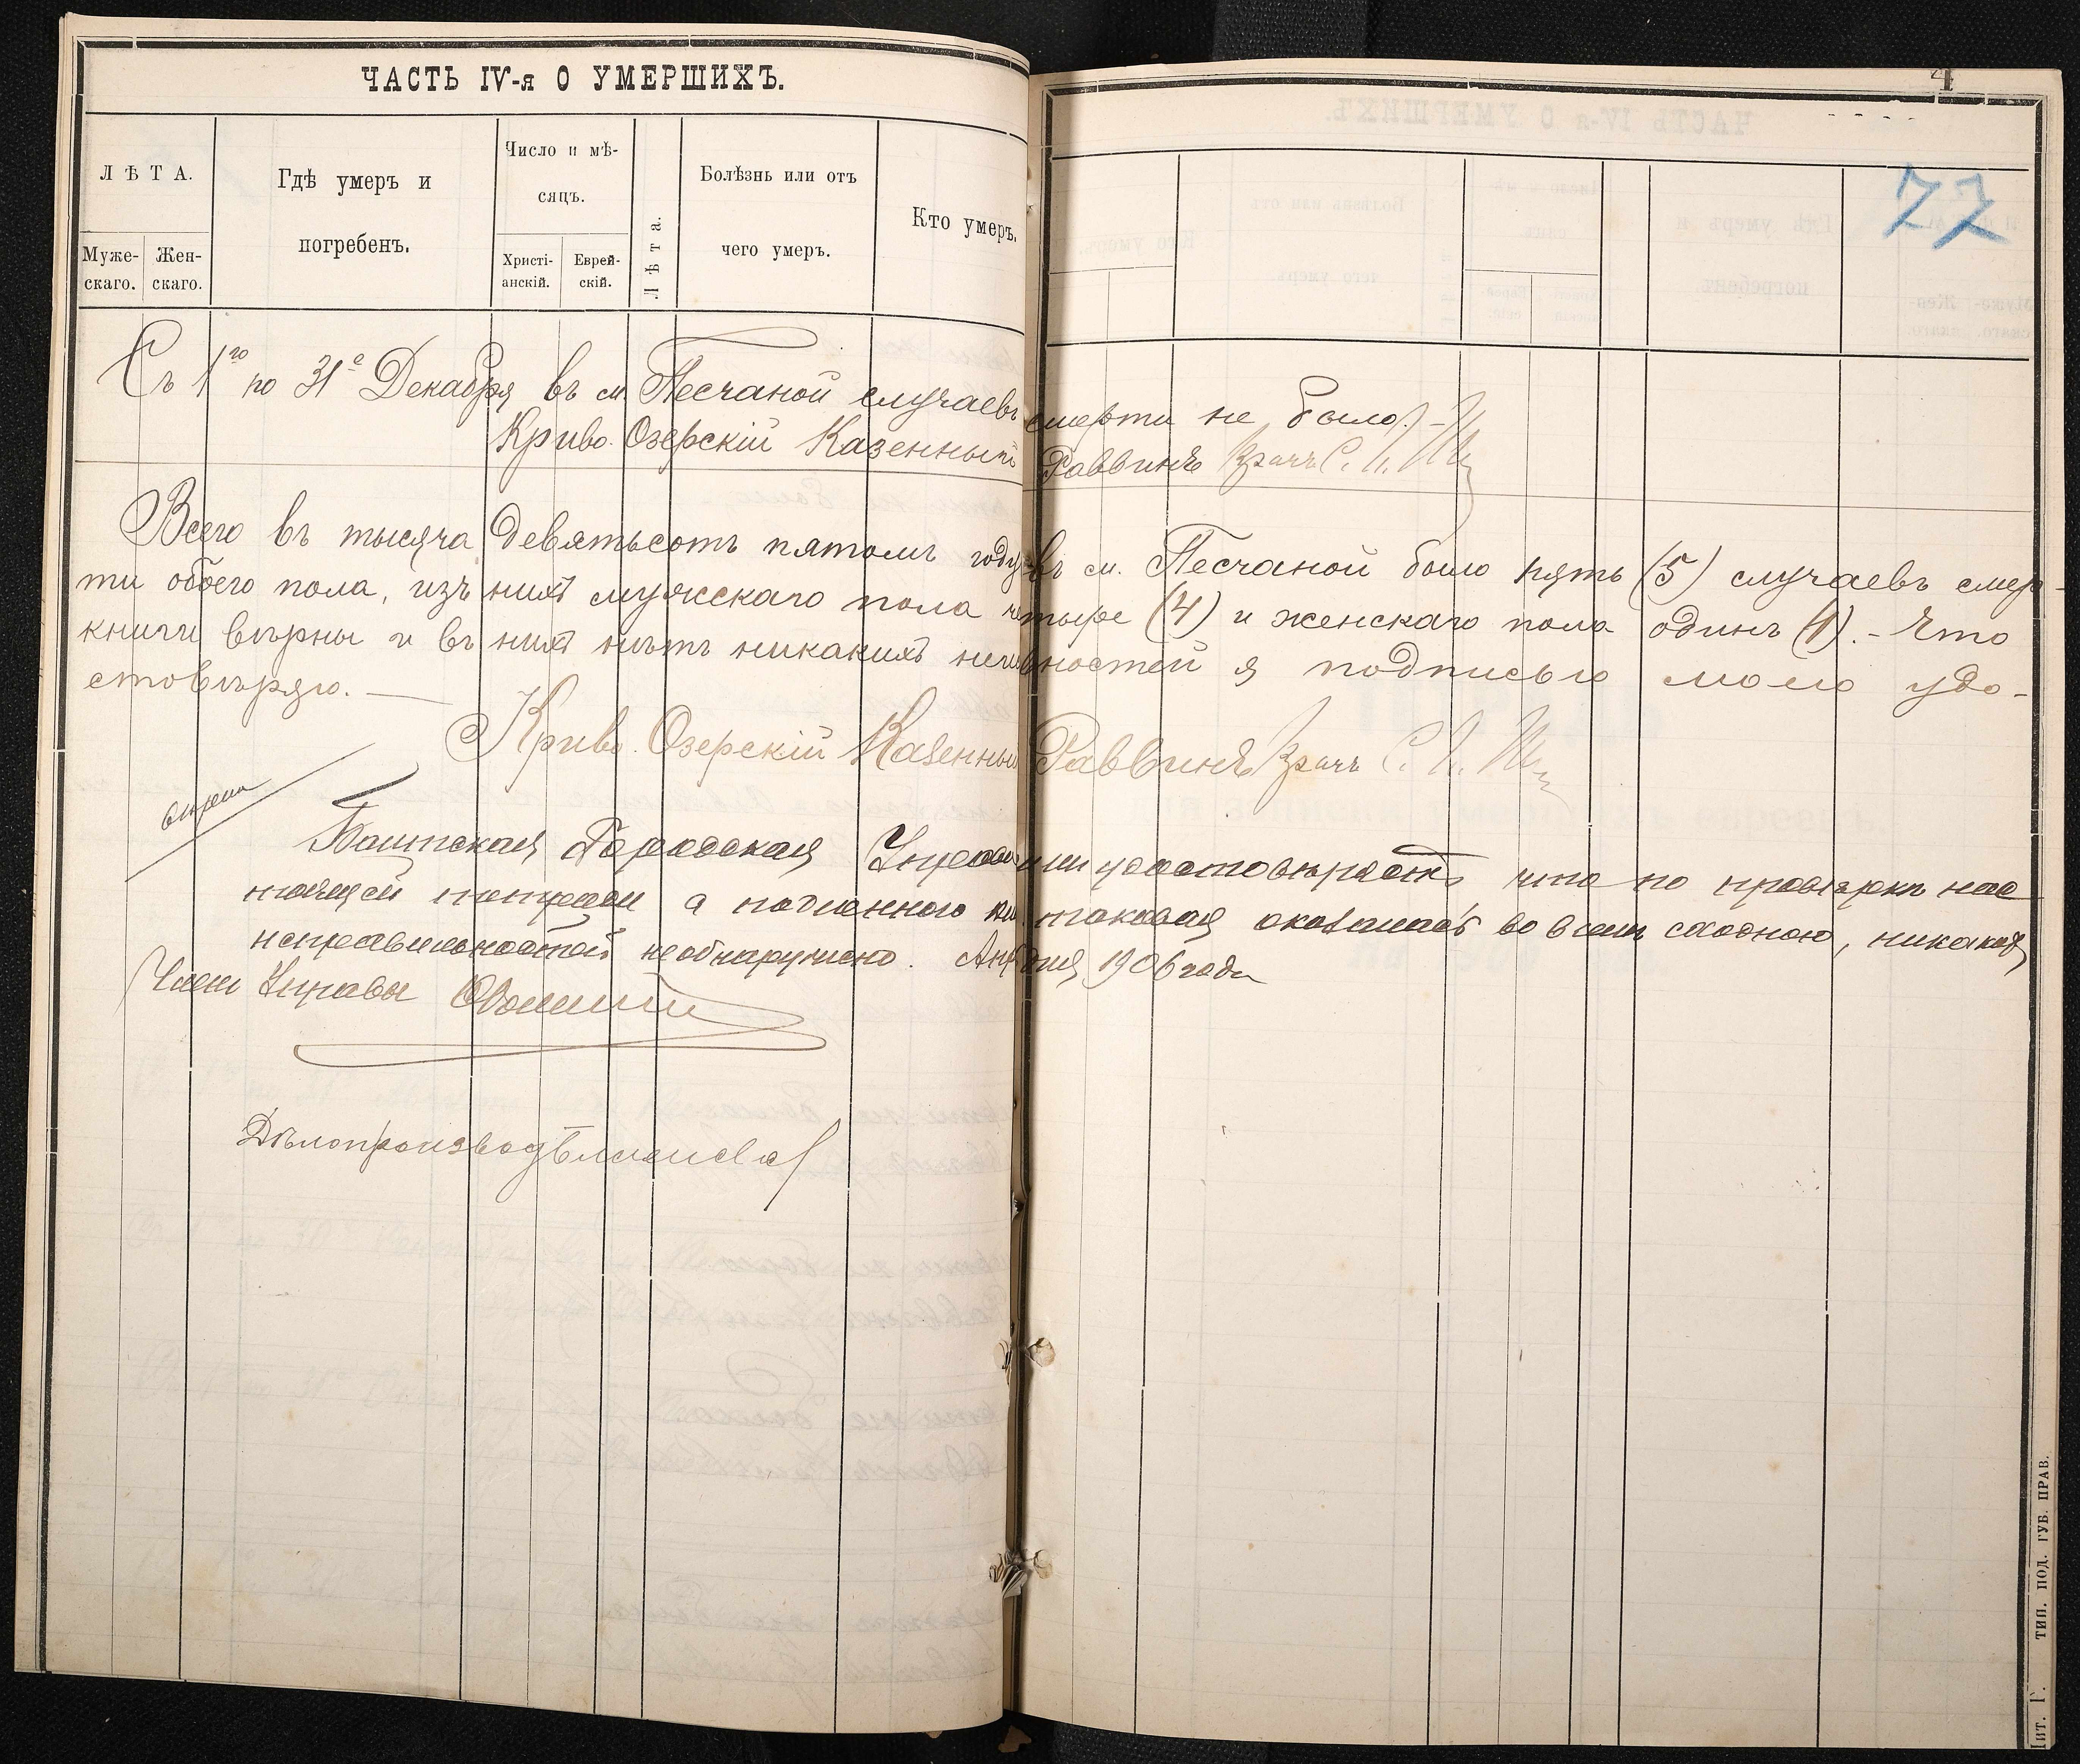 ЧАСТЬ IV-я О УМЕРШИХЪ.
4
77
ЛѢТА.
Муже-скаго.
Жен-скаго.
Гдѣ умеръ и погребенъ.
Число и мѣ-сяцъ.
Христі-анскій.
Еврей-скій.
Лѣта.
Болѣзнь или отъ чего умеръ.
Кто умеръ.
Съ 1го по 31е Декабря въ м. Песчаной случаевъ смерти не было.-
Криво-Озерскій Казенный Раввинъ Врачъ С.
Всего въ тысяча девятьсотъ пятомъ году въ м. Песчаной было пять (5) случаевъ смер-
ти обоего пола, изъ нихъ мужскаго пола четыре (4) и женскаго пола одинъ (1).- Что
книги вѣрны и въ нихъ нѣтъ никакихъ я подписью моею удо-
стовѣряю.
Криво-Озерскій Казенный Раввинъ Врачъ С.
Балтская Городская Управа удостовѣряетъ что по провѣркѣ нас
тоящей тетради таковая оказалась во всемъ сходною, никакихъ
неправильностей необнаружено. Апр дня 1906 года
Членъ Управы
Дѣлопроизводитель
Лит. Г. ТИП. ПОД. ГУБ. ПРАВ.